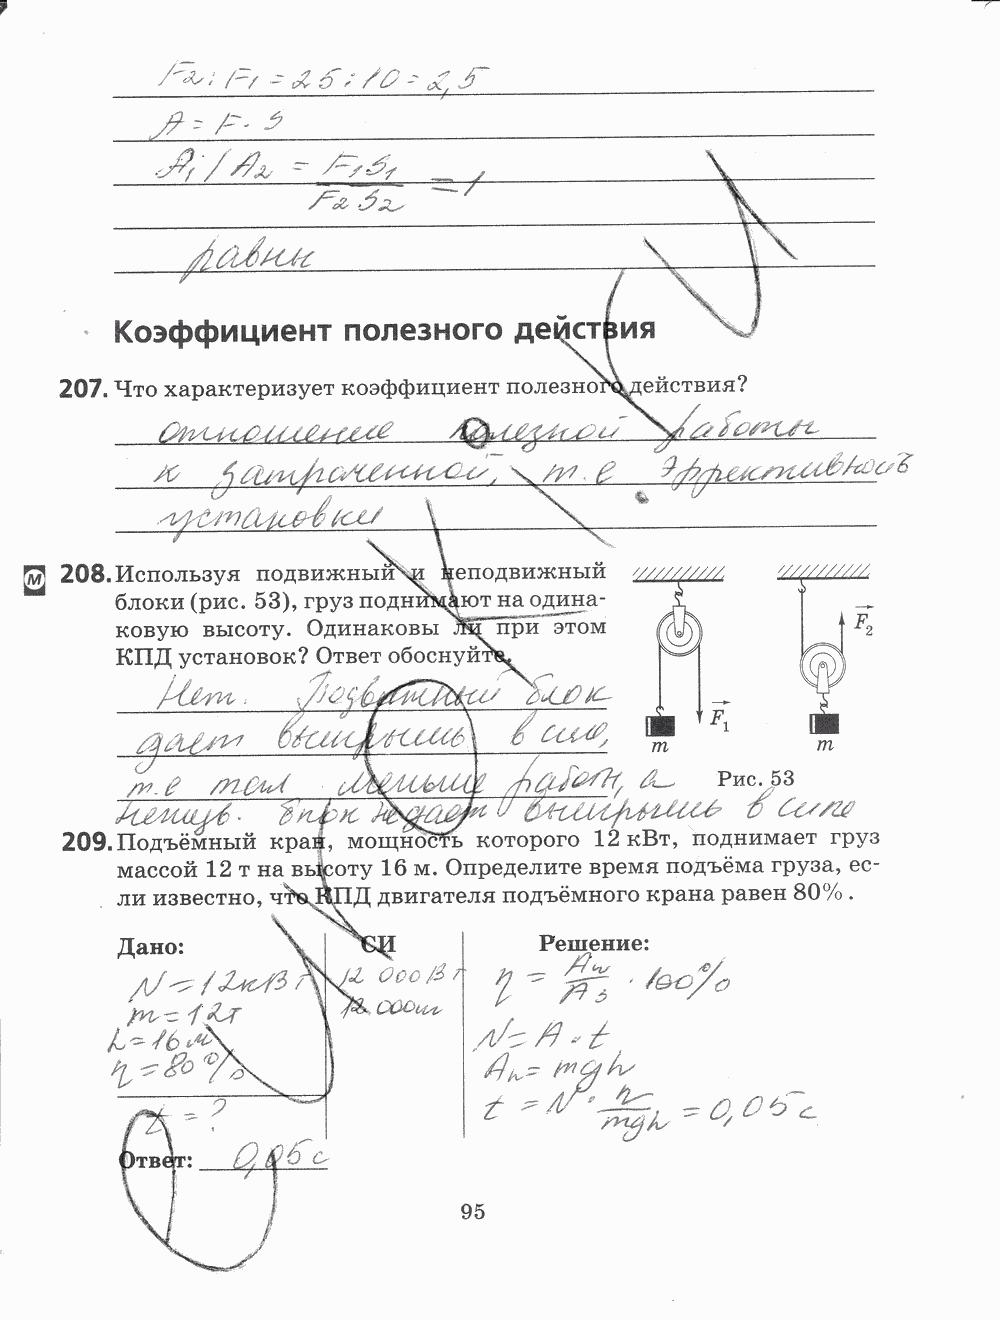 F2 : F1 = 25 : 10 = 2,5
A = F · S
A1 / A2 = F1S1 / F2S2 = 1
равны
Коэффициент полезного действия
207. Что характеризует коэффициент полезного действия?
отношение полезной работы
к затраченной, т.е эффективность
установки
М 208. Используя подвижный и неподвижный
блоки (рис. 53), груз поднимают на одина-
ковую высоту. Одинаковы ли при этом
КПД установок? Ответ обоснуйте.
Нет. Подвижный блок
дает выигрышь в силе,
т.е там меньше работы, а
неподв. блок не дает выигрышь в силе
F1
F2
m
m
Рис. 53
209. Подъёмный кран, мощность которого 12 кВт, поднимает груз
массой 12 т на высоту 16 м. Определите время подъёма груза, ес-
ли известно, что КПД двигателя подъёмного крана равен 80% .
Дано: СИ Решение:
N = 12кВт 12 000Вт η = Aп / Aз · 100%
m = 12т 12 000кг
h = 16 м N = A · t
η = 80% Aп = mgh
t = ? t = N · η / mgh = 0,05 с
Ответ: 0,05 с
95